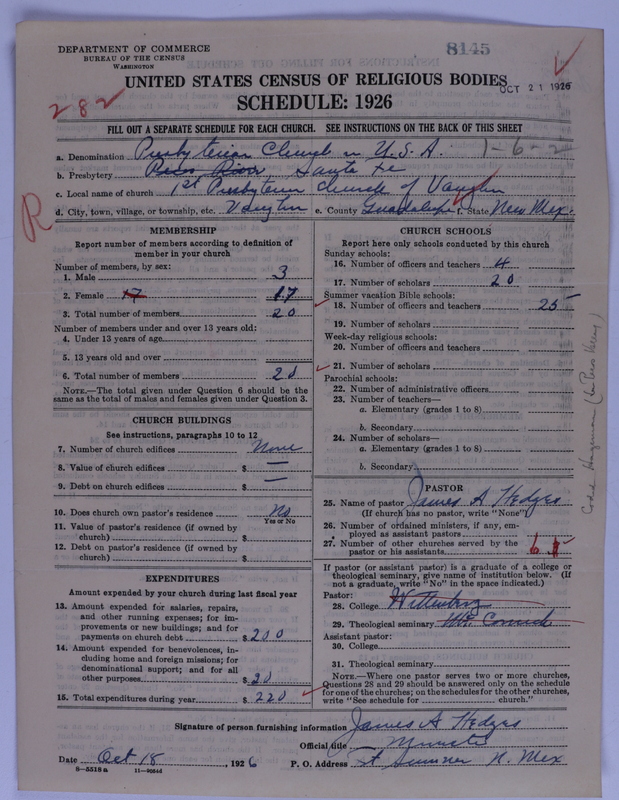 8145
DEPARTMENT OF COMMERCE
BUREAU OF THE CENSUS
WASHINGTON
UNITED STATES CENSUS OF RELIGIOUS BODIES
OCT 21 1926
282
SCHEDULE: 1926
FILL OUT A SEPARATE SCHEDULE FOR EACH CHURCH. SEE INSTRUCTIONS ON THE BACK OF THIS SHEET
a. Denomination Presbyterian Church in U.S.A. 1-6-2
b. Presbytery Pecos River Sante Fe
c. Local name of church 1st Presbyterian Church of Vaughn
R
d. City, town, village, or township, etc. Vaughn e. County Guadalupe f. State New Mex.
MEMBERSHIP
Report number of members according to definition of
member in your church
Number of members, by sex:
1. Male 3
2. Female 17 17
3. Total number of members 20
Number of members under and over 13 years old:
4. Under 13 years of age
5. 13 years old and over
6. Total number of members 20
NOTE.—The total given under Question 6 should be the
same as the total of males and females given under Question 3.
CHURCH BUILDINGS
See instructions, paragraphs 10 to 12
7. Number of church edifices None
8. Value of church edifices $ —
9. Debt on church edifices $ —
10. Does church own pastor's residence No
Yes or No
11. Value of pastor's residence (if owned by
church) $
12. Debt on pastor's residence (if owned by
church) $
EXPENDITURES
Amount expended by your church during last fiscal year
13. Amount expended for salaries, repairs,
and other running expenses; for im-
provements or new buildings; and for
payments on church debt $200
14. Amount expended for benevolences, in-
cluding home and foreign missions; for
denominational support; and for all
other purposes $20
15. Total expenditures during year $220
CHURCH SCHOOLS
Report here only schools conducted by this church
Sunday schools:
16. Number of officers and teachers 4
17. Number of scholars 20
Summer vacation Bible schools:
18. Number of officers and teachers 25
19. Number of scholars
Week-day religious schools:
20. Number of officers and teachers
21. Number of scholars
Parochial schools:
22. Number of administrative officers
23. Number of teachers—
a. Elementary (grades 1 to 8)
b. Secondary
24. Number of scholars—
a. Elementary (grades 1 to 8)
b. Secondary
PASTOR
25. Name of pastor James A Hedges
(If church has no pastor, write "None")
26. Number of ordained ministers, if any, em-
ployed as assistant pastors
27. Number of other churches served by the
pastor or his assistants 6
If pastor (or assistant pastor) is a graduate of a college or
theological seminary, give name of institution below. (If
not a graduate, write "No" in the space indicated.)
Pastor:
28. College Wittenberg
29. Theological seminary McCormick
Assistant pastor:
30. College
31. Theological seminary
NOTE.—Where one pastor serves two or more churches,
Questions 28 and 29 should be answered only on the schedule
for one of the churches; on the schedules for the other churches,
write "See schedule for church."
Signature of person furnishing information James A Hedges
Official title Minister
Date Oct 18, 1926 P. O. Address Ft Sumner N. Mex
8-5518 a